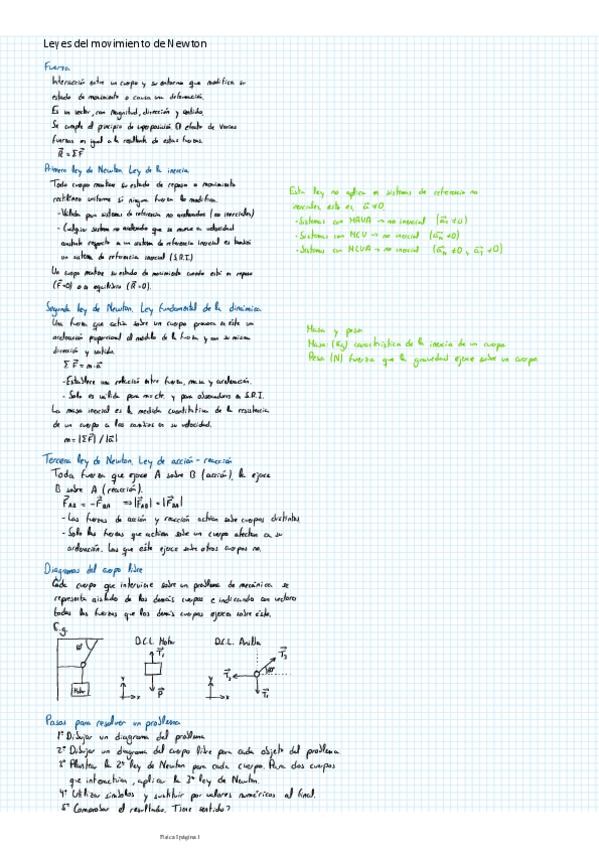 Leyes del movimiento de Newton
Fuerza
Interacción entre un cuerpo y su entorno que modifica su
estado de movimiento o causa una deformación.
Es un vector, con magnitud, dirección y sentido.
Se cumple el principio de superposición. El efecto de varias
fuerzas es igual a la resultante de estas fuerzas.
R⃗ = ΣF⃗
Primera ley de Newton. Ley de la inercia
Todo cuerpo mantiene su estado de reposo o movimiento
rectilíneo uniforme si ninguna fuerza lo modifica.
- Válida para sistemas de referencia no acelerados (o inerciales)
- Cualquier sistema no acelerado que se mueva a velocidad
constante respecto a un sistema de referencia inercial es también
un sistema de referencia inercial (S.R.I.)
Un cuerpo mantiene su estado de movimiento cuando está en reposo
(F⃗=0) o en equilibrio (R⃗=0).
Esta ley no aplica en sistemas de referencia no
inerciales, esto es, a⃗ ≠ 0.
- Sistemas con MRUA → no inercial (a⃗t ≠ 0)
- Sistemas con MCU → no inercial (a⃗n ≠ 0)
- Sistemas con MCUA → no inercial (a⃗n ≠ 0, a⃗t ≠ 0)
Segunda ley de Newton. Ley fundamental de la dinámica
Una fuerza que actúa sobre un cuerpo provoca en éste una
aceleración proporcional al módulo de la fuerza y con su misma
dirección y sentido.
ΣF⃗ = m·a⃗
- Establece una relación entre fuerza, masa y aceleración.
- Solo es válida para m=cte. y para observadores en S.R.I.
La masa inercial es la medida cuantitativa de la resistencia
de un cuerpo a los cambios en su velocidad.
m = |ΣF⃗| / |a⃗|
Masa y peso
Masa: (Kg) característica de la inercia de un cuerpo
Peso (N) fuerza que la gravedad ejerce sobre un cuerpo
Tercera ley de Newton. Ley de acción - reacción
Toda fuerza que ejerce A sobre B (acción), la ejerce
B sobre A (reacción).
F⃗AB = -F⃗BA ⇒ |F⃗AB| = |F⃗BA|
- Las fuerzas de acción y reacción actúan sobre cuerpos distintos.
- Solo las fuerzas que actúan sobre un cuerpo afectan a su
aceleración. Las que éste ejerce sobre otros cuerpos no.
Diagramas del cuerpo libre
Cada cuerpo que interviene sobre un problema de mecánica se
representa aislado de los demás cuerpos e indicando con vectores
todas las fuerzas que los demás cuerpos ejercen sobre éste.
E.g.
D.C.L. Motor
D.C.L. Anilla
60°
Motor
T⃗1
P⃗
y
x
y
x
T⃗3
60°
T⃗2
T⃗1
Pasos para resolver un problema
1º Dibujar un diagrama del problema
2º Dibujar un diagrama del cuerpo libre para cada objeto del problema
3º Plantear la 2ª ley de Newton para cada cuerpo. Para dos cuerpos
que interactúan, aplicar la 3ª ley de Newton.
4º Utilizar símbolos y sustituir por valores numéricos al final.
5º Comprobar el resultado. Tiene sentido?
Física I página 1